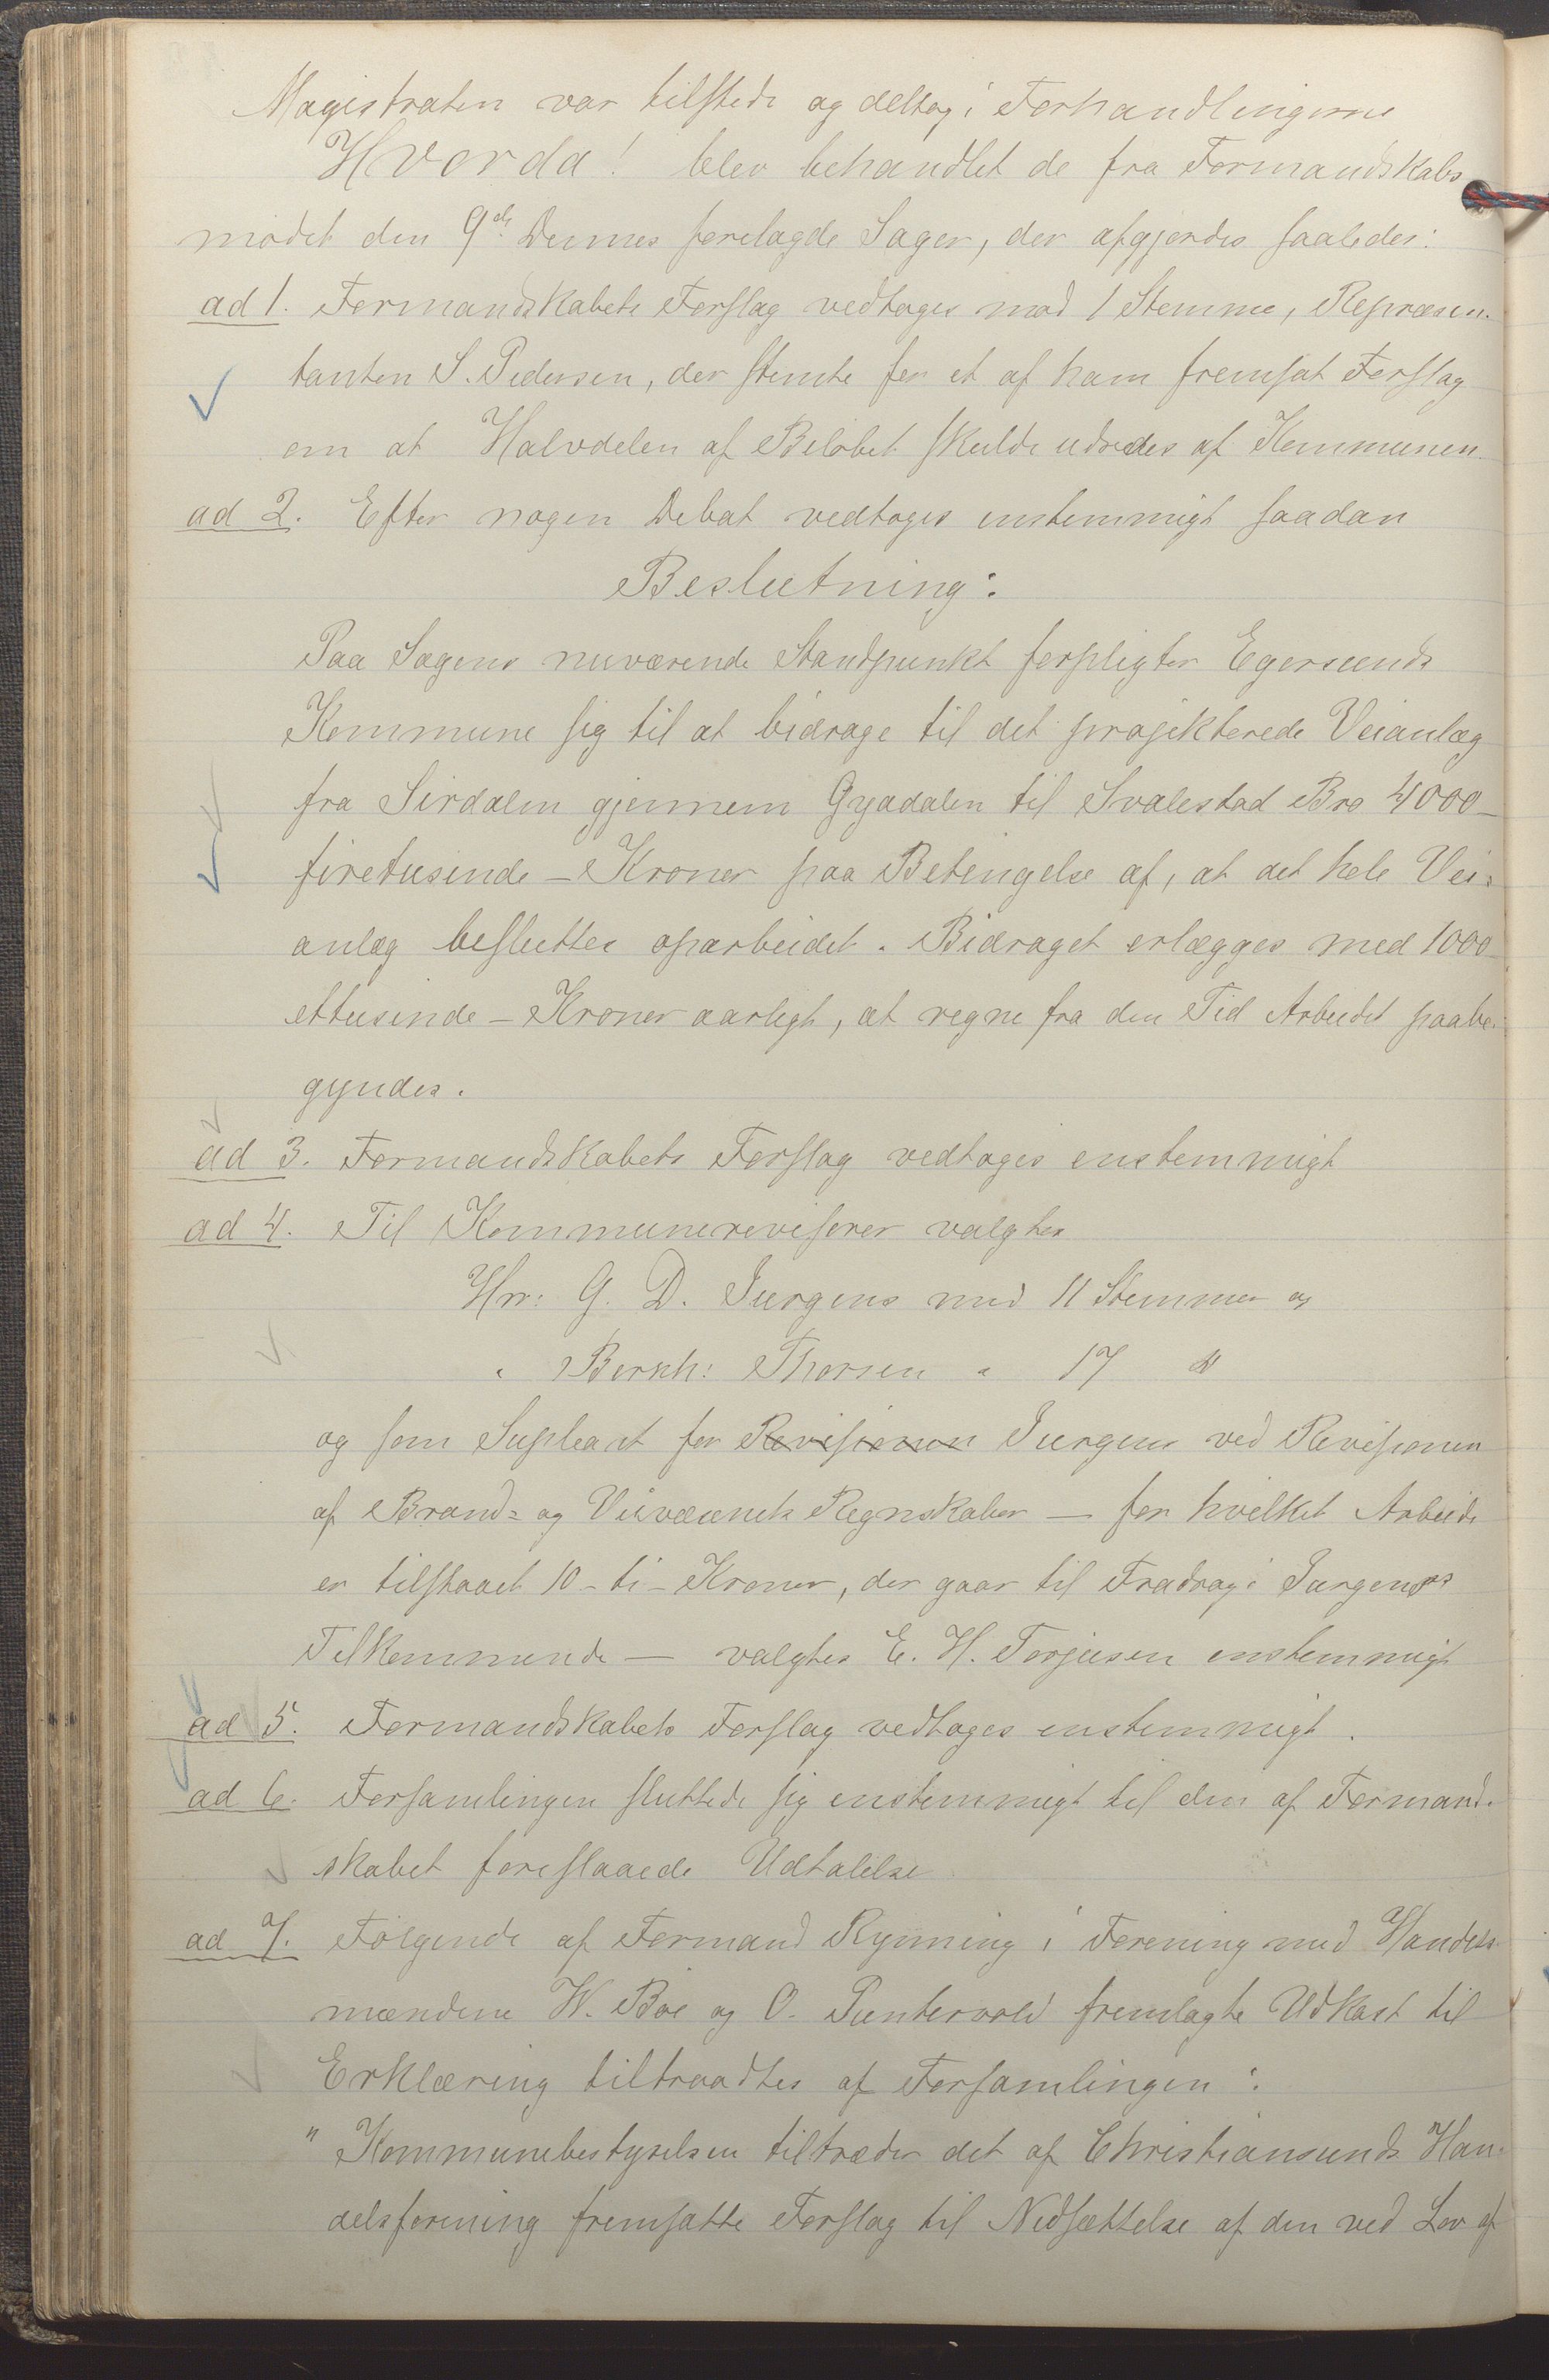 Magistraten var tilstede og deltog i Forhandlingerne
Hvorda! blev behandlet de fra Formandskabs
mødet den 9de Dennes forelagde Sager, der afgjordes saaledes:
ad 1. Formandskabets Forslag vedtoges mod 1 Stemme, Repræsen-
tanten S. Pedersen, der stemte for et af ham fremsat Forslag
om at Halvdelen af Beløbet skulde udredes af Kommunen.
ad 2. Efter nogen Debat vedtoges enstemmigt saadan
Beslutning:
Paa Sagens nuværende Standpunkt forpligter Egersunds
Kommune sig til at bidrage til det projekterede Veianlæg
fra Sirdalen gjennem Gyadalen til Svalestad Bro 4000-
firetusinde - Kroner paa Betingelse af, at det hele Vei-
anlæg besluttes oparbeidet. Bidraget erlægges med 1000
ettusinde - Kroner aarligt, at regne fra den Tid Arbeidet paabe-
gyndes.
ad 3. Formandskabets Forslag vedtoges enstemmigt
ad 4. Til Kommunerevisorer valgtes
Hrr: G. D. Jurgens med 11 Stemmer og
" Bernh: Thorsen " 17 "
og som Supleant for Revisionen Jurgens ved Revisionen
af Brand- og Veivæsenets Regnskaber — for hvilket Arbeide
er tilstaaet 10 - ti - Kroner, der gaar til Fradrag i Jurgens's
Tilkommende — valgtes E. H. Torjusen enstemmigt
ad 5. Formandskabets Forslag vedtoges enstemmigt.
ad 6. Forsamlingen sluttede sig enstemmigt til den af Formand-
skabet foreslaaede Udtalelse
ad 7. Følgende af Formand Rynning i Forening med Handels
mændene W. Boe og O. Puntervold fremlagte Udkast til
Erklæring tiltraadtes af Forsamlingen:
" Kommunebestyrelsen tiltræder det af Christiansunds Han-
delsforening fremsatte Forslag til Nedsættelse af den ved Lov af